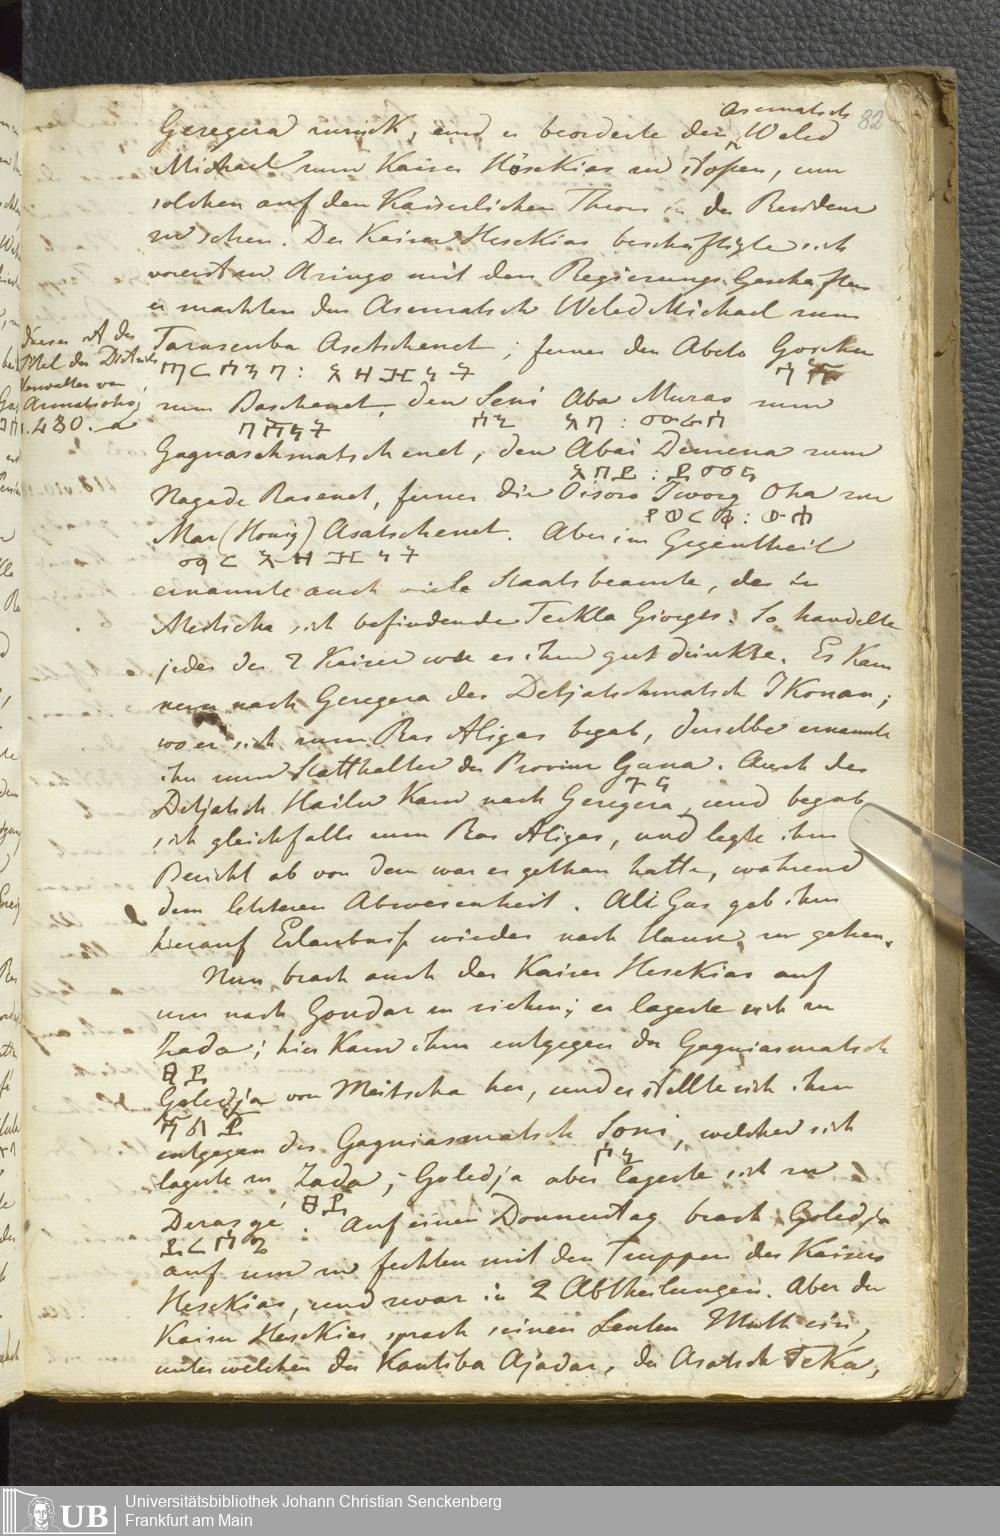 82
Asematsch
Geregera zurück, und er beorderte den Weled
Michael zum Kaiser Hesekias zu stossen, um
solchen auf den Kaiserlichen Thron in der Residenz
zu sehen. Der Kaiser Hesekias beschäftigte sich
vorerst zu Aringo mit den Regierungs Geschäften
er machten den Asematsch Weled Michael zum
Tarasenba Asetschenet; ferner den Abeto Goschu
Dieses ist der
Titel des Districts
Verwalters von
zum Baschenet, den Seni Aba Muras zum
Gagnaschmatschenet, dem Abai Demena zum
Nagade Rasenet, ferner die Oisoro Tworg Oha zur
Mar (Honig) Asatschenet. Aber im Gegentheil
ernannte auch viele Staatsbeamte, der in
Meitscha sich befindende Teckla Giorgis. So handelte
jeder der 2 Kaiser wie es ihm gut dünkte. Es kam
nun nach Geregera der Detjatschmatsch Ikonan;
wo er sich zum Ras Aligas begab, derselbe ernannte
ihn zum Statthalter der Provinz Guna. Auch der
Detjatsch Hailu kam nach Geregera, und begab
sich gleichfalls zum Ras Aligas, und legte ihm
Bericht ab von dem was er gethan hatte, während
dem letzteren Abwesenheit. AliGas gab ihm
hierauf Erlaubniss wieder nach Hause zu gehen.
Nun brach auch der Kaiser Hesekias auf
um nach Gondar zu ziehen; er lagerte sich zu
Zada; hier kam ihm entgegen der Gagniasmatsch
Goledja von Meitscha her, und es stellte sich ihm
entgegen der Gagniasmatsch Soni, welcher sich
lagerte zu Zada; Goledja aber lagerte sich zu
Derasgé. Auf einen Donnerstag brach Goledja
auf um zu fechten mit den Truppen des Kaisers
Hesekias, und zwar in 2 Abtheilungen. Aber der
Kaiser Hesekias sprach seinen Leuten Muth ein,
unter welchen der Kantiba Ajadar, der Asatsch Teka,
Universitätsbibliothek Johann Christian Senckenberg
Frankfurt am Main
UB